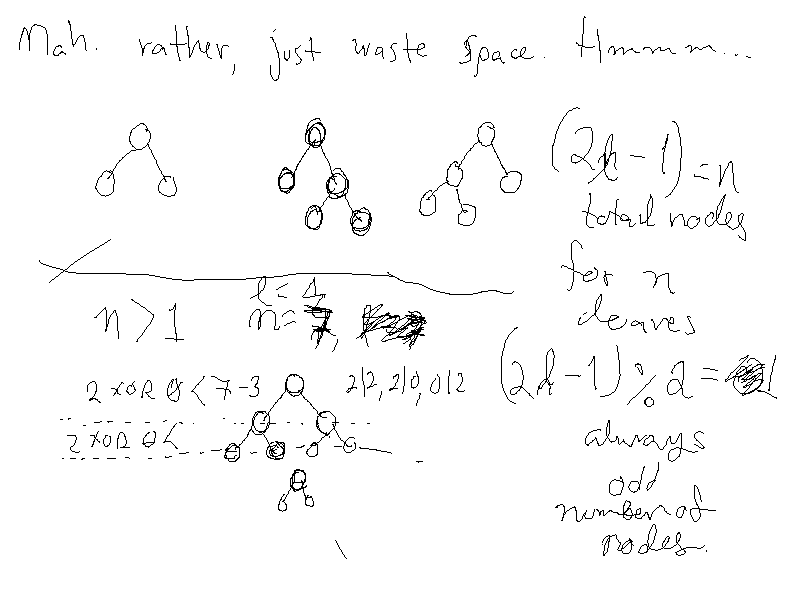 Mah. rather, just waste space. Hmmm...
(2l - 1) = n
total nodes
for n
leaves
n > 1
l = 4
n = 7,
2 XOR 0 < 7-3
2|2, 2|0, 0|2
(2l - 1) % 2 = 1
2 XOR 0 <
always
odd
number of
nodes.